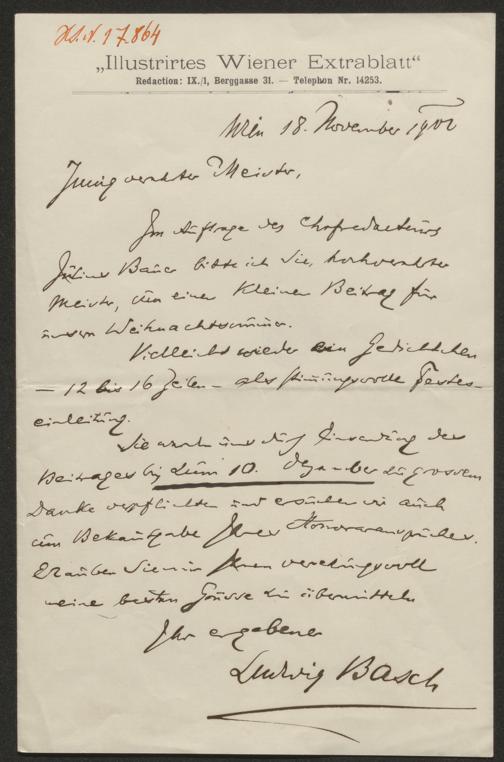 H.I.N. 17.864
„Illustrirtes Wiener Extrablatt“
Redaction: IX./1, Berggasse 31. — Telephon Nr. 14253.
Wien 18. November 1902
Innig verehrter Meister,
Im Auftrage des Chefredacteurs
Julius Bauer bitte ich Sie, hochverehrter
Meister, um einen kleinen Beitrag für
unsere Weihnachtsnummer.
Vielleicht wieder ein Gedichtchen
— 12 bis 16 Zeilen — als stimmungsvolle Festes-
einleitung.
Sie uns durch Einsendung des
Beitrages bis zum 10. Dezember zu grossem
Danke verpflichten und ersuchen wir auch
um Bekanntgabe Ihres Honoraranspruches.
Erlauben Sie mir Ihnen verehrungsvoll
meine besten Grüsse zu übermitteln
Ihr ergebener
Ludwig Basch